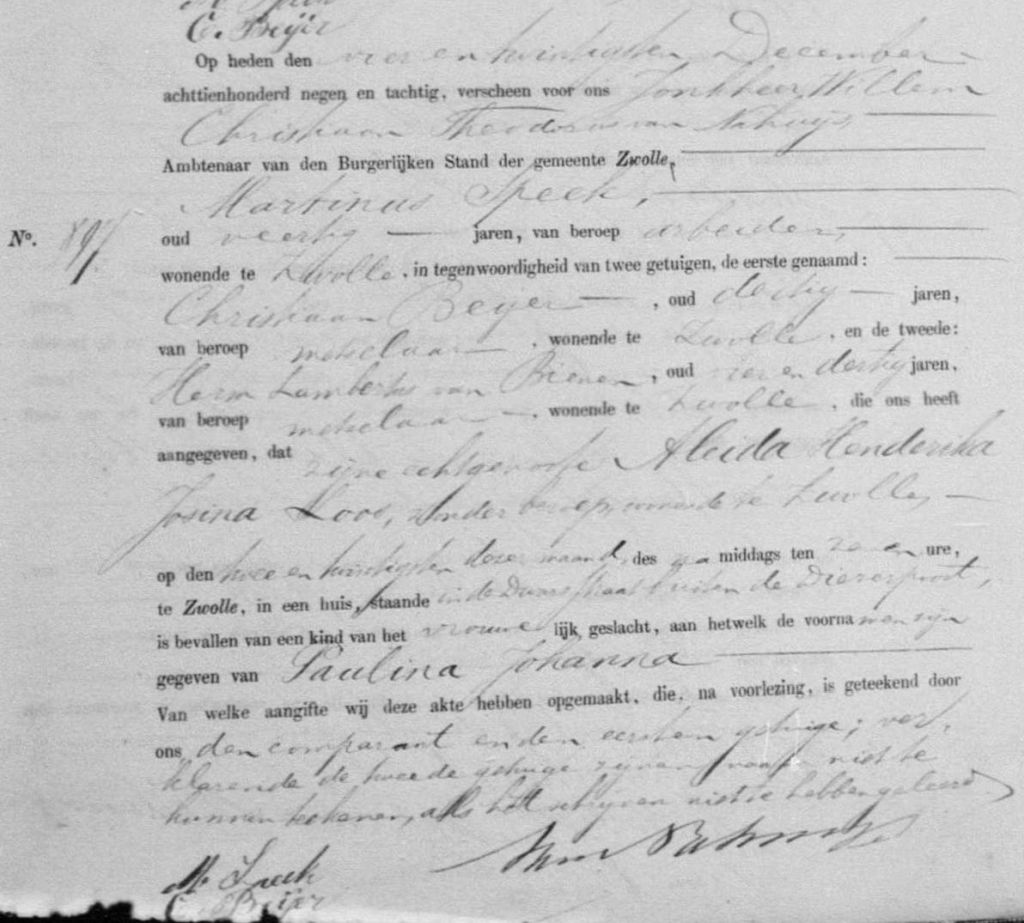 C. Beijer
Op heden den vier en twintigsten December
achttienhonderd negen en tachtig, verscheen voor ons Jonkheer Willem
Christiaan Theodorus van Nahuijs,
Ambtenaar van den Burgerlijken Stand der gemeente Zwolle,
Martinus Speek,
No. 897.
oud veertig jaren, van beroep arbeider,
wonende te Zwolle, in tegenwoordigheid van twee getuigen, de eerste genaamd:
Christiaan Beijer, oud dertig jaren,
van beroep metselaar, wonende te Zwolle, en de tweede:
Herm Lambertus van Bienen, oud vier en dertig jaren,
van beroep metselaar, wonende te Zwolle, die ons heeft
aangegeven, dat zijne echtgenoote Aleida Henderika
Josina Loos, zonder beroep, wonende te Zwolle,
op den twee en twintigsten dezer maand, des na middags ten zeven ure,
te Zwolle, in een huis, staande in de Dwarsstraat buiten de Diezerpoort,
is bevallen van een kind van het vrouwelijk geslacht, aan hetwelk de voornamen zijn
gegeven van Paulina Johanna
Van welke aangifte wij deze akte hebben opgemaakt, die, na voorlezing, is geteekend door
ons den comparant en den eersten getuige; ver-
klarende de tweede getuige zijnen naam niet te
kunnen teekenen, als het schrijven niet te hebben geleerd.
M. Speek
C. Beijer